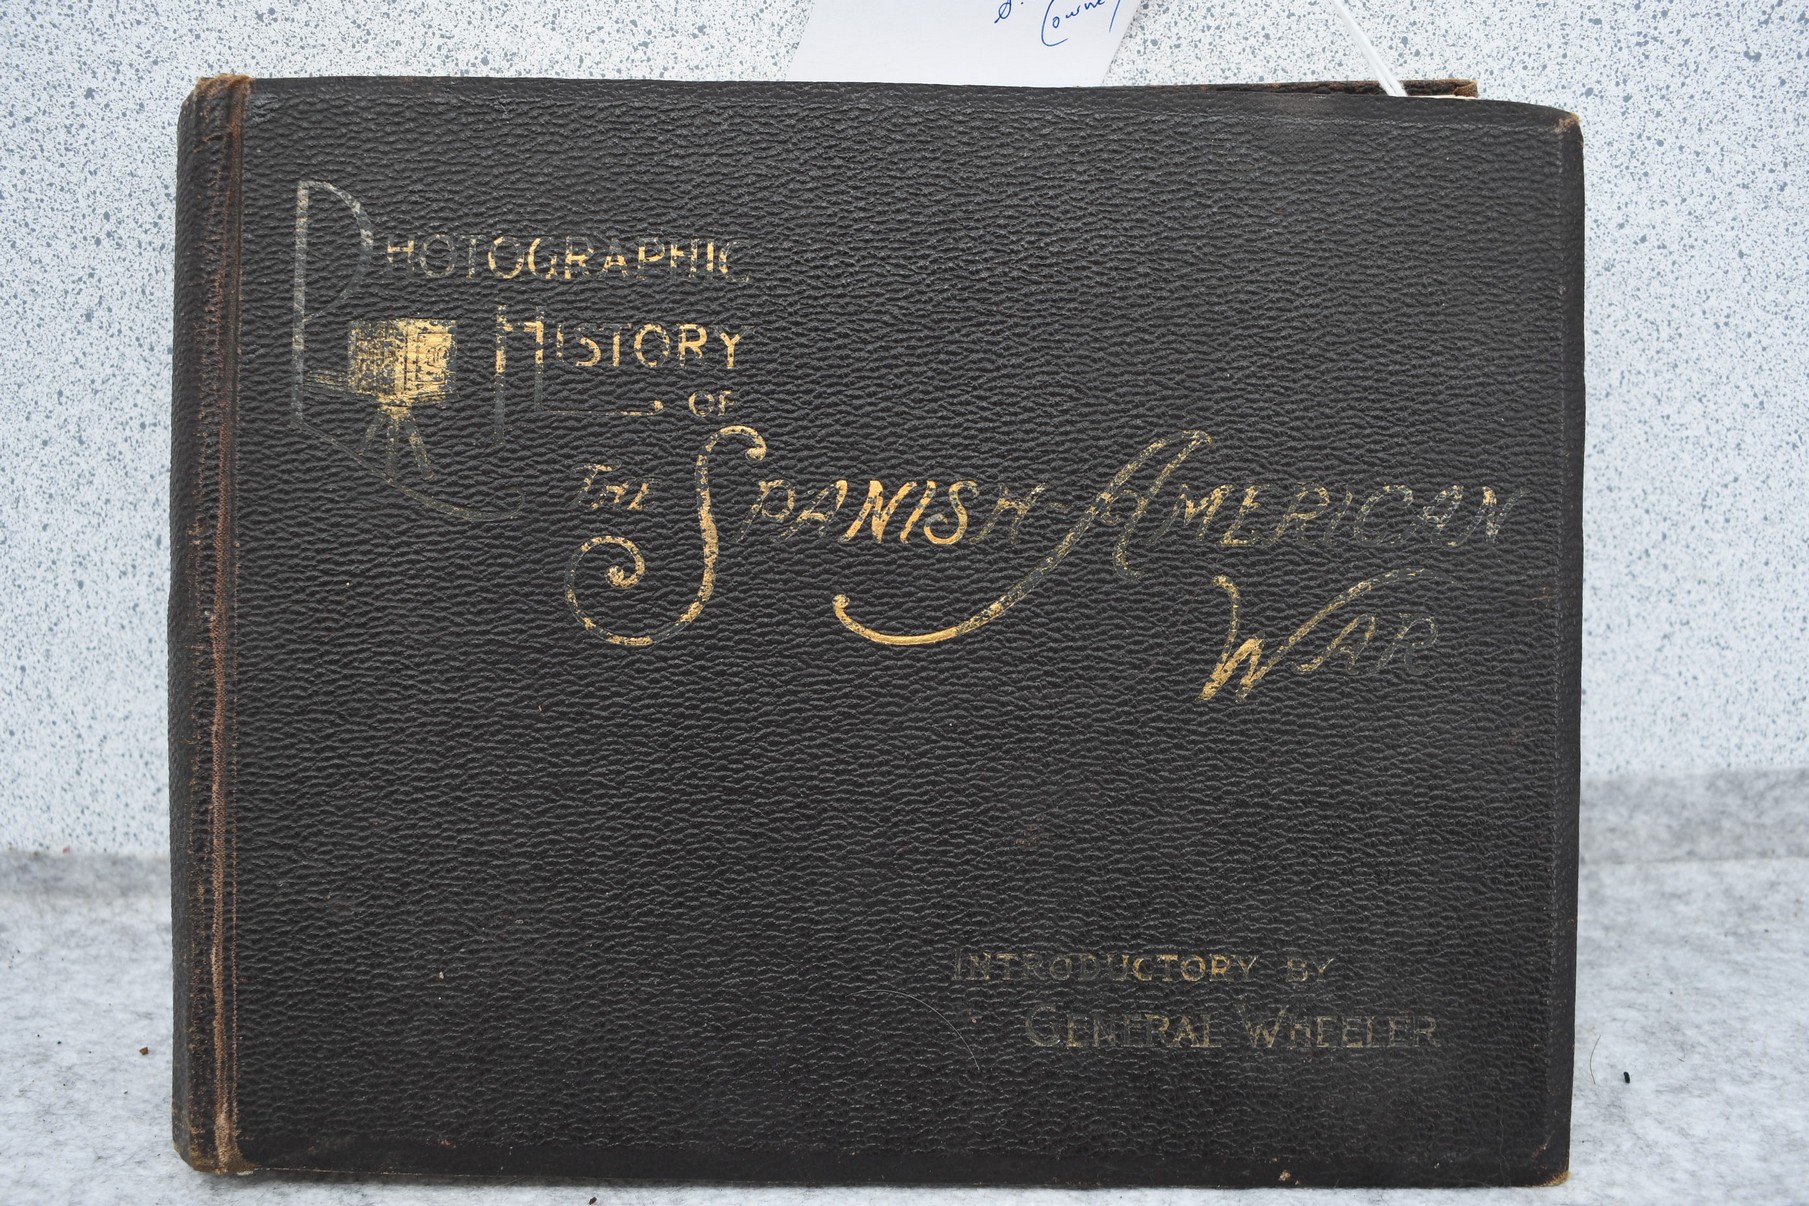 PHOTOGRAPHIC
HISTORY
OF
THE SPANISH-AMERICAN
WAR
INTRODUCTORY BY
GENERAL WHEELER